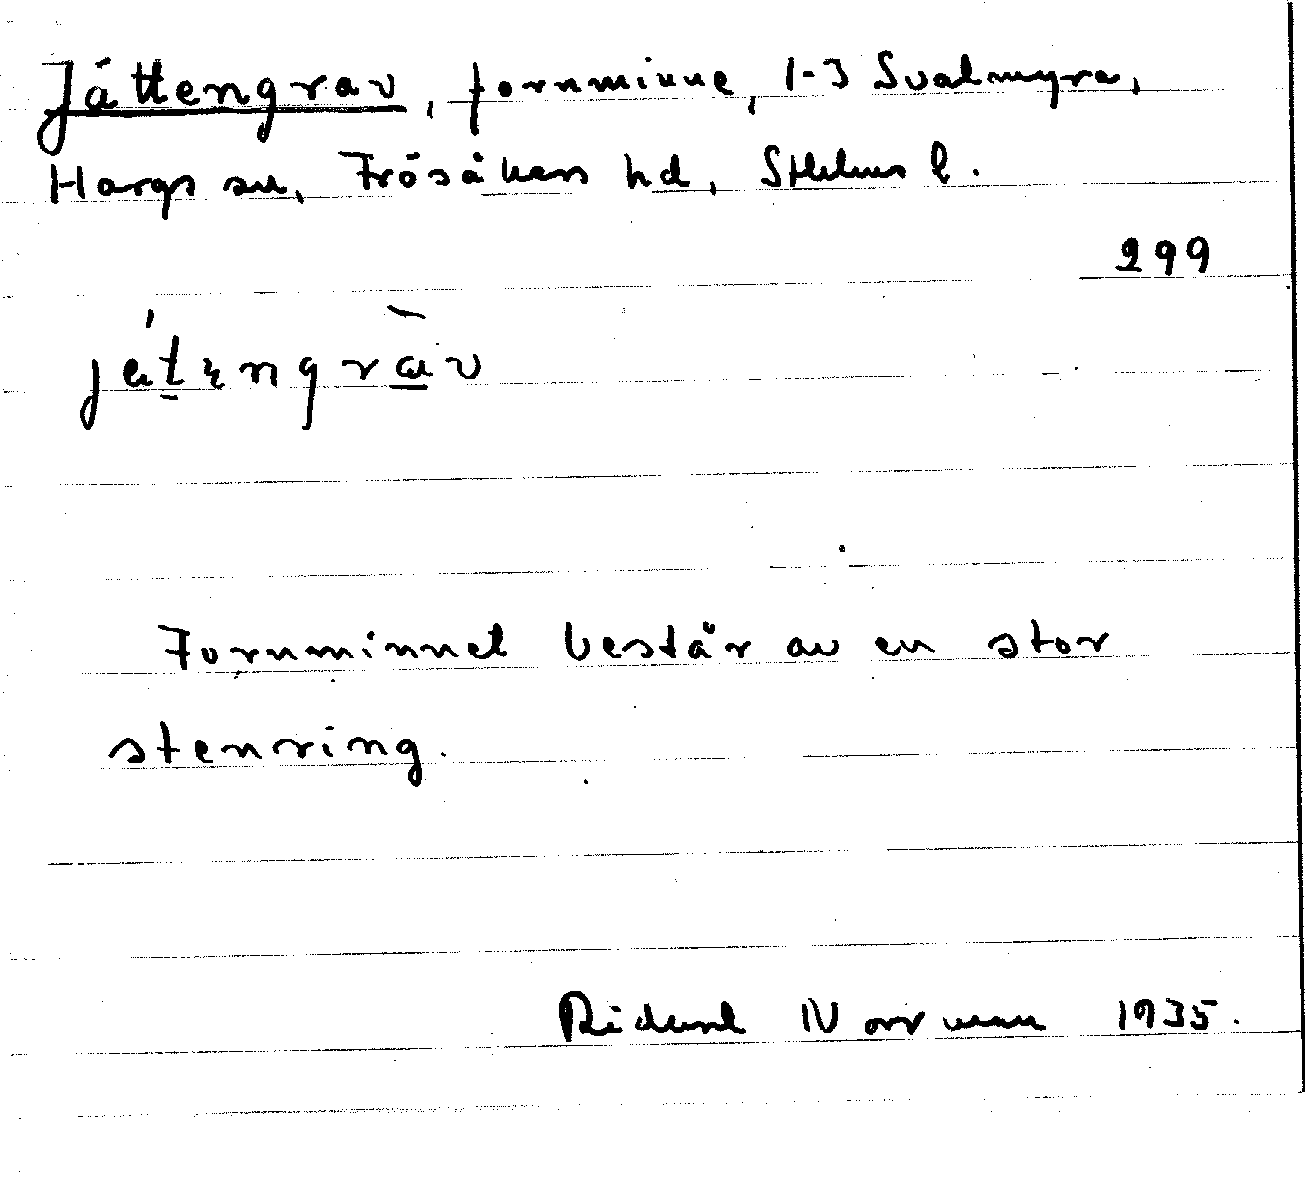 Jättengrav, fornminne, 1-3 Svalmyra,
Hargs sn, Frösåkers hd, Sthlms l.
299
Fornminnet består av en stor
stenring.
Rickard Norrman 1935.